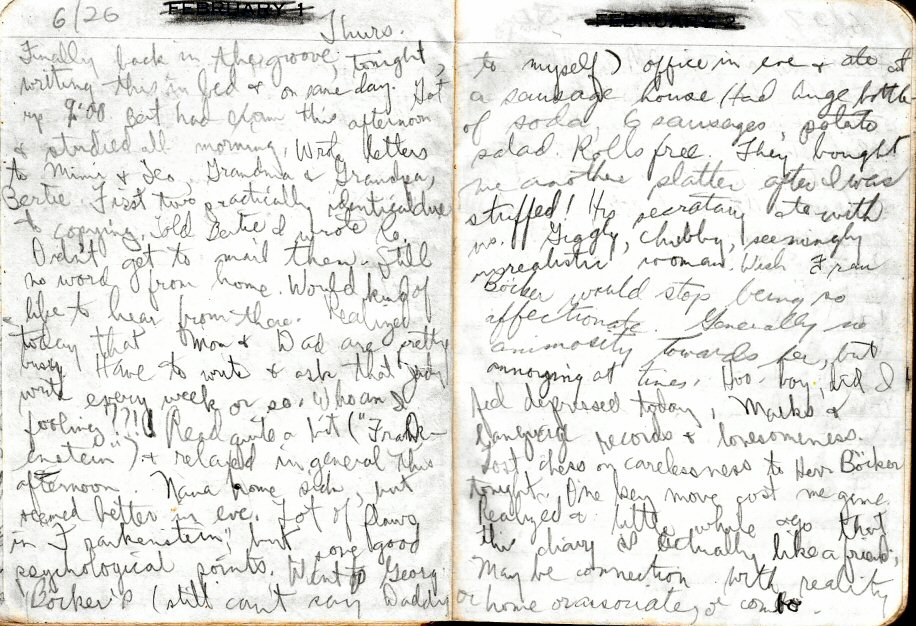 6/26
FEBRUARY 1
Thurs.
Finally back in the groove, tonight,
writing this in bed & on same day. Got
up 9:00 Bert had exam this afternoon
& studied all morning. Wrote letters
to Mimi & Leo, Grandma & Grandpa,
Bertie. First two practically identical due
to copying. Told Bertie I wrote
Didn't get to mail them. Still
no word from home. Would kind of
like to hear from there. Realized
today that Mom & Dad are pretty
busy. Have to write & ask that Judy
write every week or so. Who am I
fooling??!! Read quite a bit ("Frank-
enstein") & relaxed in general this
afternoon. Nana home sick, but
seemed better in eve. Lot of flaws
in "Frankenstein," but some good
psychological points. Went to Georg
Böcker's (still can't say Daddy
FEBRUARY 2
to myself) office in eve & ate at
a sausage house (Had huge bottle
of soda, 6 sausages, potato
salad. Rolls free. They bought
me another platter after I was
stuffed! His secretary ate with
us. Giggly, chubby, seemingly
unrealistic woman. Wish Frau
Böcker would stop being so
affectionate. Generally no
animosity towards her, but
annoying at times. Hoo-boy, did I
feel depressed today, Marks &
language records & lonesomeness.
Lost chess on carelessness to Herr Böcker
tonight. One key move cost me game.
Realized a little while ago that
this diary is actually like a friend;
May be connection with reality
or home or associate, or combo.